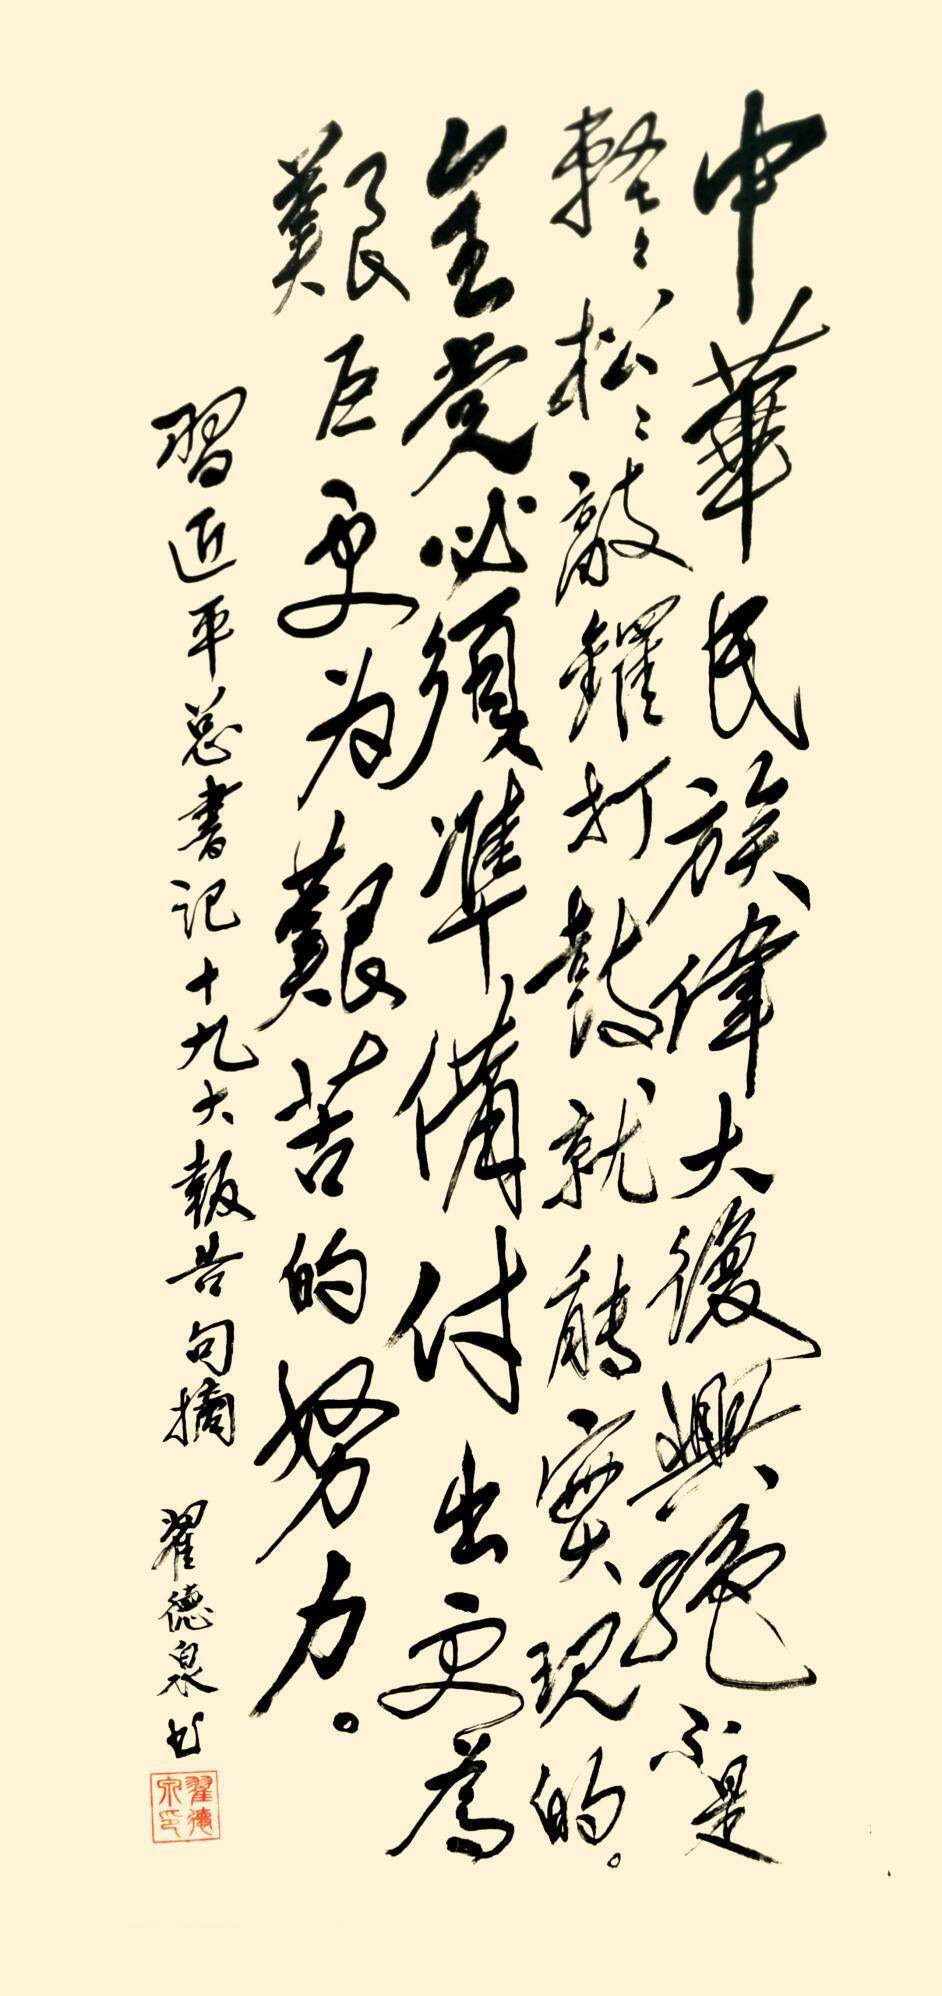 中華民族偉大復興絕不是
輕々松々敲鑼打鼓就能實現的。
全党必須準備付出更為
艱巨更为艱苦的努力。
習近平总書記十九大報告句摘 翟德泉书
翟德泉印